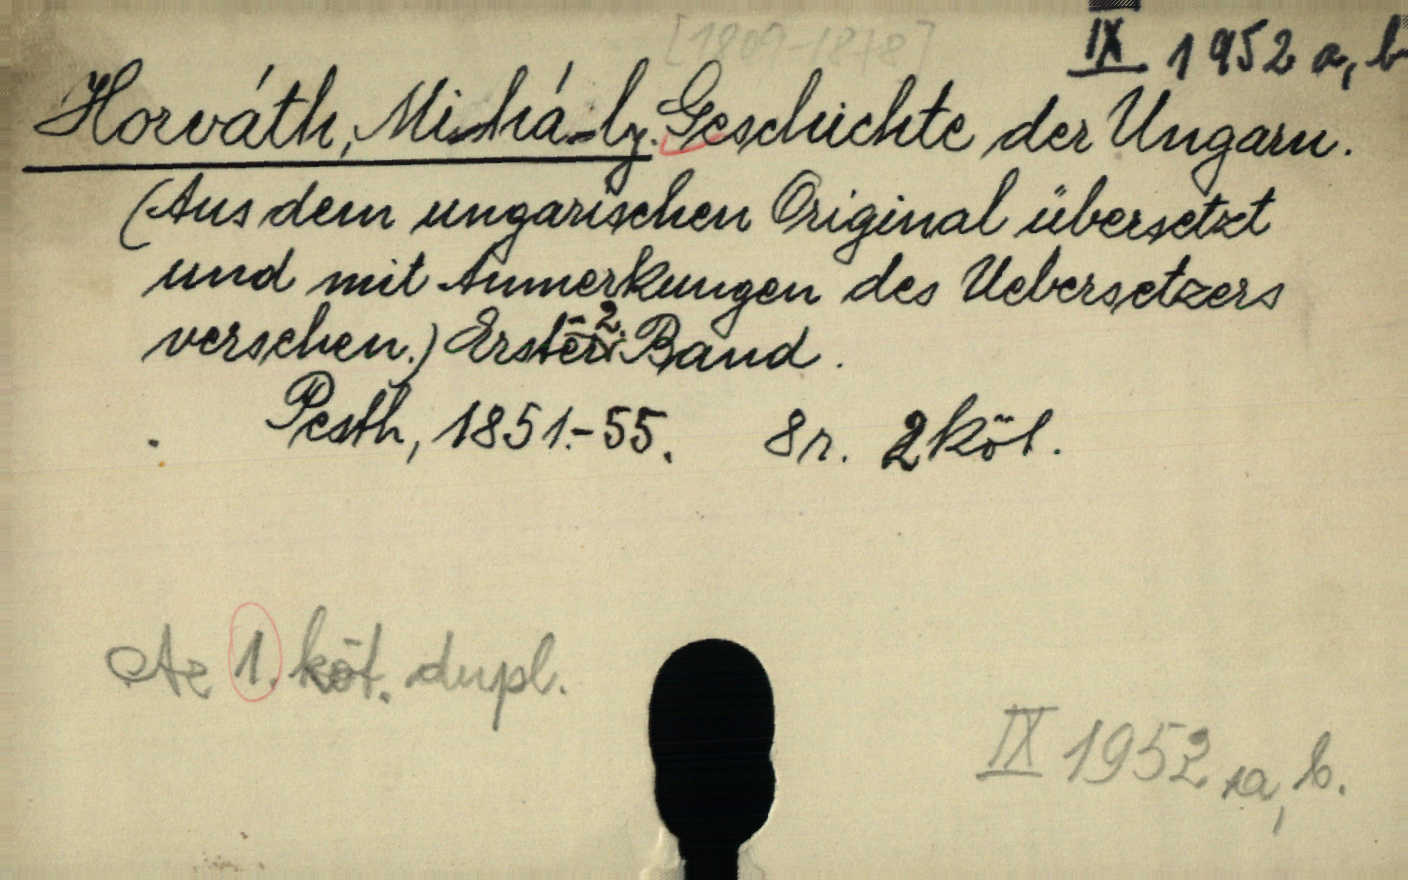 [1809-1878]
IX 1952 a, b
Horváth, Mihály. Geschichte der Ungarn.
(Aus dem ungarischen Original übersetzt
und mit Anmerkungen des Uebersetzers
versehen.) Erster -2. Band.
Pesth, 1851.-55. 8r. 2 köt.
Az 1. köt. dupl.
IX 1952 a, b.